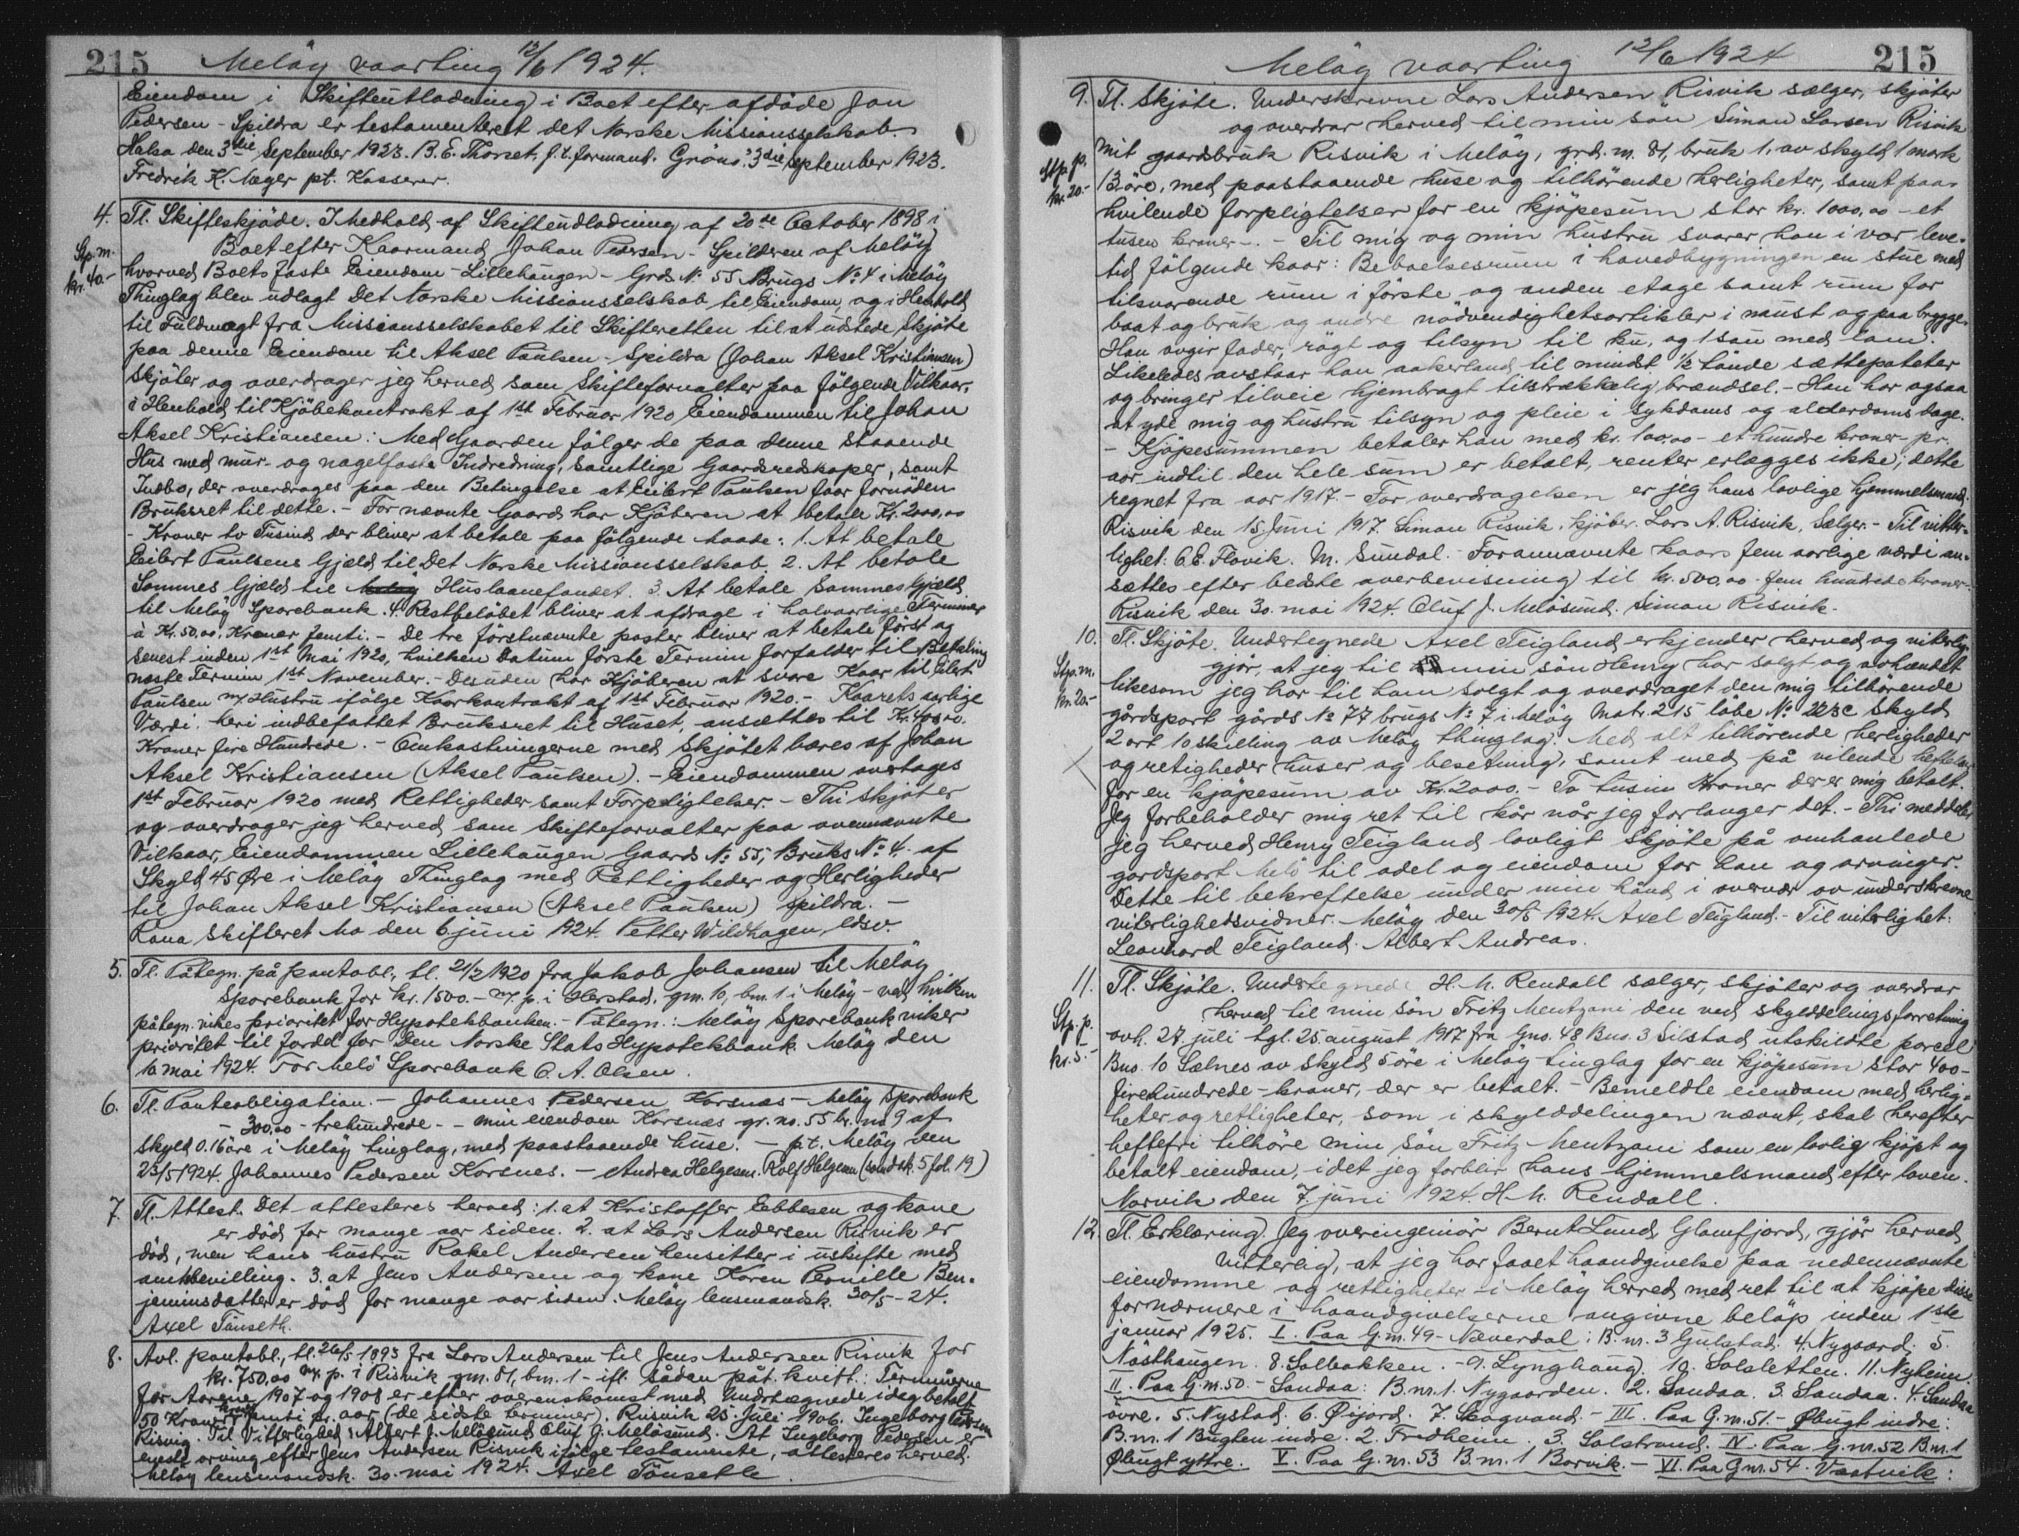 215
Meløy vaarting 12/6 1924.
Eiendom i Skifteutlodning i Boet efter afdøde Jon
Pedersen - Spildra er testamenteret det Norske Missionsselskab
Halsa den 3die September 1923. B. E. Thorset, f.t. formand. Grönö 3die September 1923.
Fredrik K. Meger pt. Kasserer.
4. Tl. Skifteskjöde. I Medhold af Skifteudlodning af 20de October 1898 i
Boet efter Kaarmand Johan Pedersen - Spilderen af Meløy
Stp. m.
kr. 40.-
hvorved Boets faste Eiendom - Lillehaugen - Grds No 55 Brugs No 4 i Meløy
Thinglag blev udlagt Det Norske Missionsselskab til Eiendom og i Henhold
til Fuldmagt fra Missionsselskabet til Skifteretten til at udstede Skjöte
paa denne Eiendom til Aksel Paulsen - Spildra (Johan Aksel Kristiansen)
skjöter og overdrager jeg herved som Skifteforvalter paa følgende Vilkaar.
i Henhold til Kjöbekontrakt af 1st Februar 1920 Eiendommen til Johan
Aksel Kristiansen: Med Gaarden fölger de paa denne staaende
Hus med mur- og nagelfaste Indredning, samtlige Gaardsredskaper, samt
Indbo, der overdrages paa den Betingelse at Eilert Paulsen faar fornöden
Bruksret til dette. - For nævnte Gaard har Kjöberen at betale Kr. 2000,00
- Kroner to Tusind der bliver at betale paa fölgende Maade: 1. At betale
Eilert Paulsens Gjæld til Det Norske Missionsselskab. 2. At betale
Sammes Gjæld til Meløy Huslaanefondet. 3. At betale Sammes Gjæld
til Meløy Sparebank. 4. Restbelöbet bliver at afdrage i halvaarlige Terminer
à Kr. 50,00. Kroner femti. - De tre förstnævnte poster bliver at betale först og
senest inden 1st Mai 1920, hvilken Datum förste Termin forfalder til Betaling
næste Termin 1st November. - Desuden har Kjöberen at svare Kaar til Eilert
Paulsen m/ Hustru ifölge Kaarkontrakt af 1st Februar 1920. - Kaarets aarlige
Værdi, heri indbefattet Bruksret til Huset, ansættes til Kr. 400,00.
Kroner fire Hundrede. - Omkostningerne med Skjötet bæres af Johan
Aksel Kristiansen (Aksel Paulsen). - Eiendommen overtages
1st Februar 1920 med Rettigheder samt Forpligtelser. - Thi skjöter
og overdrager jeg herved som Skifteforvalter paa ovennævnte
Vilkaar, Eiendommen Lillehaugen Gaards No 55, Bruks No 4. af
Skyld 45 Øre i Meløy Thinglag med Rettigheder og Herligheder
til Johan Aksel Kristiansen (Aksel Paulsen) Spildra. -
Rana Skifteret Mo den 6 juni 1924. Petter Wildhagen, ldsv.
5. Tl. Påtegn. på pantobl., tl. 21/2 1920 fra Jakob Johansen til Meløy
Sparebank for kr. 1500.- m/ p. i Herstad, gm. 10, bm. 1 i Meløy - ved hvilken
påtegn. vikes prioritet for Hypotekbanken. - Påtegn.: Meløy Sparebank viker
prioritet til fordel for Den Norske Stats Hypotekbank. Meløy den
16 mai 1924. For Melö Sparebank O. A. Olsen.
6. Tl. Panteobligation. - Johannes Pedersen Korsnæs - Meløy Sparebank
- 300,00 - trehundrede. - - min eiendom Korsnæs gr. no. 55 br. no 9 af
skyld 0.16 öre i Meløy tinglag, med paastaaende huse. - p.t. Meløy den
23/5 1924. Johannes Pedersen Korsnes. - Andrea Helgesen. Rolf Helgesen (sandsk. 5 fol. 19)
7. Tl. Attest. Det attesteres herved: 1. at Kristoffer Ebbesen og kone
er död for mange aar siden. 2. at Lars Andersen Risvik er
död, men hans hustru Rakel Andersen hensitter i uskifte med
amtsbevilling. 3. at Jens Andersen og kone Karen Pernille Ben-
jeminsdatter er död for mange aar siden. Meløy lensmandsk. 30/5 - 24.
Axel Tönseth.
8. Avl. pantobl., tl. 26/5 1893 fra Lars Andersen til Jens Andersen Risvik for
kr. 750,00 m/ p. i Risvik gm. 81, bm. 1 - ifl. sådan påt. kvitt.: Terminerne
for Aarene 1907 og 1908 er efter overenskomst med Undertegnede idag betalt
50 Kroner femti pr. aar (de sidste terminer). Risvik 25 Juli 1906. Ingeborg Pedersen
Risvig. Til Vitterlighed: Albert J. Meløsund Oluf J. Meløsund. At Ingeborg Pedersen er
eneste arving efter Jens Andersen Risvik ifölge testamente, attesteres herved.
Meløy lensmandsk. 30. mai 1924. Axel Tönseth.
215
Meløy vaarting 12/6 1924
9. Tl. Skjöte. Underskrevne Lars Andersen Risvik sælger, skjöter
og overdrar herved til min sön Simon Larsen Risvik
Stp. p.
kr. 20.-
mit gaardsbruk Risvik i Meløy, grd. nr. 81, bruk 1, av skyld 1 mark
13 öre, med paastaaende huse og tilhörende herligheter, samt paa-
hvilende forpligtelser for en kjöpesum stor kr. 1000,00 - et
tusen kroner -. - Til mig og min hustru svarer han i vor leve-
tid fölgende kaar: Beboelsesrum i hovedbygningen en stue med
tilsvarende rum i förste og anden etage samt rum for
baat og bruk og andre nödvendighetsartikler i naust og paa brygge.
Han avgir foder, rögt og tilsyn til ku, og 1 sau med lam.
Likeledes avstaar han aakerland til mindst 1/2 tönde sættepoteter
og bringer tilveie hjembragt tilstrækkelig brændsel. - Han har ogsaa
at yde mig og hustru tilsyn og pleie i sykdoms og alderdoms dage.
- Kjöpesummen betaler han med kr. 100,00 - et hundre kroner - pr.
aar indtil den hele sum er betalt, renter erlægges ikke; dette
regnet fra aar 1917. - For overdragelsen er jeg hans lovlige hjemmelsmand.
Risvik den 15 Juni 1917. Simon Risvik, kjöber. Lars A. Risvik, Sælger. - Til vitter-
lighet: O. E. Flovik. M. Sundal. - Forannævnte kaars fem aarlige værdi an-
sættes efter bedste overbevisning til kr. 500,00 - fem hundrede kroner -
Risvik den 30. mai 1924. Oluf J. Meløsund. Simon Risvik.
10. Tl. Skjöte. Undertegnede Axel Teigland erkjender herved og viterlig-
gjör, at jeg til min sön Henry har solgt og avhændet
Stp. m.
kr. 20.-
likesom jeg har til ham solgt og overdraget den mig tilhörende
gårdspart gårds No 77 brugs No 7 i Meløy Matr. 215 löbe No 223c Skyld
2 ort 10 skilling av Meløy thinglag. Med alt tilhörende herligheder
og retigheder (huser og besetning, samt med på vilende heftelser
for en kjöpesum av Kr. 2000. - To tusin Kroner der er mig betalt.
Jeg forbeholder mig ret til kår når jeg forlanger det. - Thi meddeler
jeg herved Henry Teigland lovligt Skjöte på omhanlede
gardspart Melö til odel og eiendom for han og arvinger.
Dette til bekreftelse under min hånd i overvær av underskrevne
viterlighedsvidner. Meløy den 30/5 1924. Axel Teigland. - Til viterlighet:
Leonhard Teigland. Albert Andreas.
11. Tl. Skjöte. Undertegnede H. M. Rendall sælger, skjöter og overdrar
herved til min sön Fritz Mentzoni den ved skylddelingsforretning
Stp. p.
kr. 5.-
avh. 27. juli - tgl. 25. august 1917 fra Gno. 48 Bno. 3 Selstad utskildte parcel
Bno. 10 Sælnes av skyld 5 öre i Meløy tinglag for en kjöpesum stor 400 -
firehundrede - kroner, der er betalt. - Bemeldte eiendom med herlig-
heter og rettigheter, som i skylddelingen nævnt, skal herefter
heftefri tilhöre min sön Fritz Mentzoni som en lovlig kjöpt og
betalt eiendom, idet jeg forblir hans hjemmelsmand efter loven.
Narvik den 7. juni 1924. H. M. Rendall.
12. Tl. Erklæring. Jeg overingeniör Bernt Lund, Glomfjord, gjör herved
vitterlig, at jeg har faaet haandgivelse paa nedennævnte
eiendomme og rettigheter i Meløy herred med ret til at kjöpe disse
for nærmere i haandgivelserne angivne belöp inden 1ste
januar 1925. I. Paa G.nr. 49 - Næverdal: B. nr. 3 Gulstad. 4. Nygaard. 5.
Nösthaugen. 8. Solbakken. - 9. Lynghaug. 10. Solsletten. 11. Nyheim.
II. Paa G.nr. 50. - Sandaa: B.nr. 1. Nygaarden. 2. Sandaa. 3. Sandaa. 4. Sandaa
övre. 5. Nystad. 6. Örjord. 7. Skogvand. - III. Paa G.nr. 51. - Øbugt indre:
B.nr. 1 Bugten indre. 2. Fredheim. 3. Solstrand. IV. Paa G.nr. 52 B.nr. 1
Øbugt yttre. V. Paa G.nr. 53 B.nr. 1 Borvik. - VI. Paa G.nr. 54. Vaatvik: